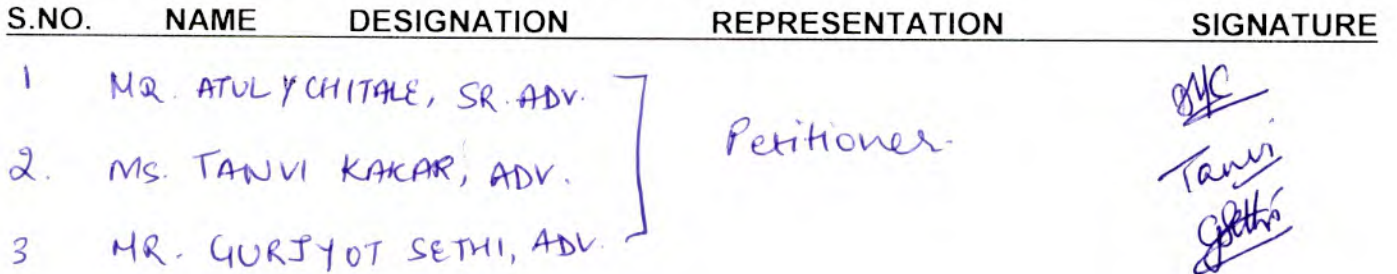 S.NO. NAME DESIGNATION REPRESENTATION SIGNATURE
1 MR. ATUL Y CHITALE, SR. ADV.
Petitioner.
2. MS. TANVI KAKAR, ADV. Tanvi
3 MR. GURJYOT SETHI, ADV. GSethi